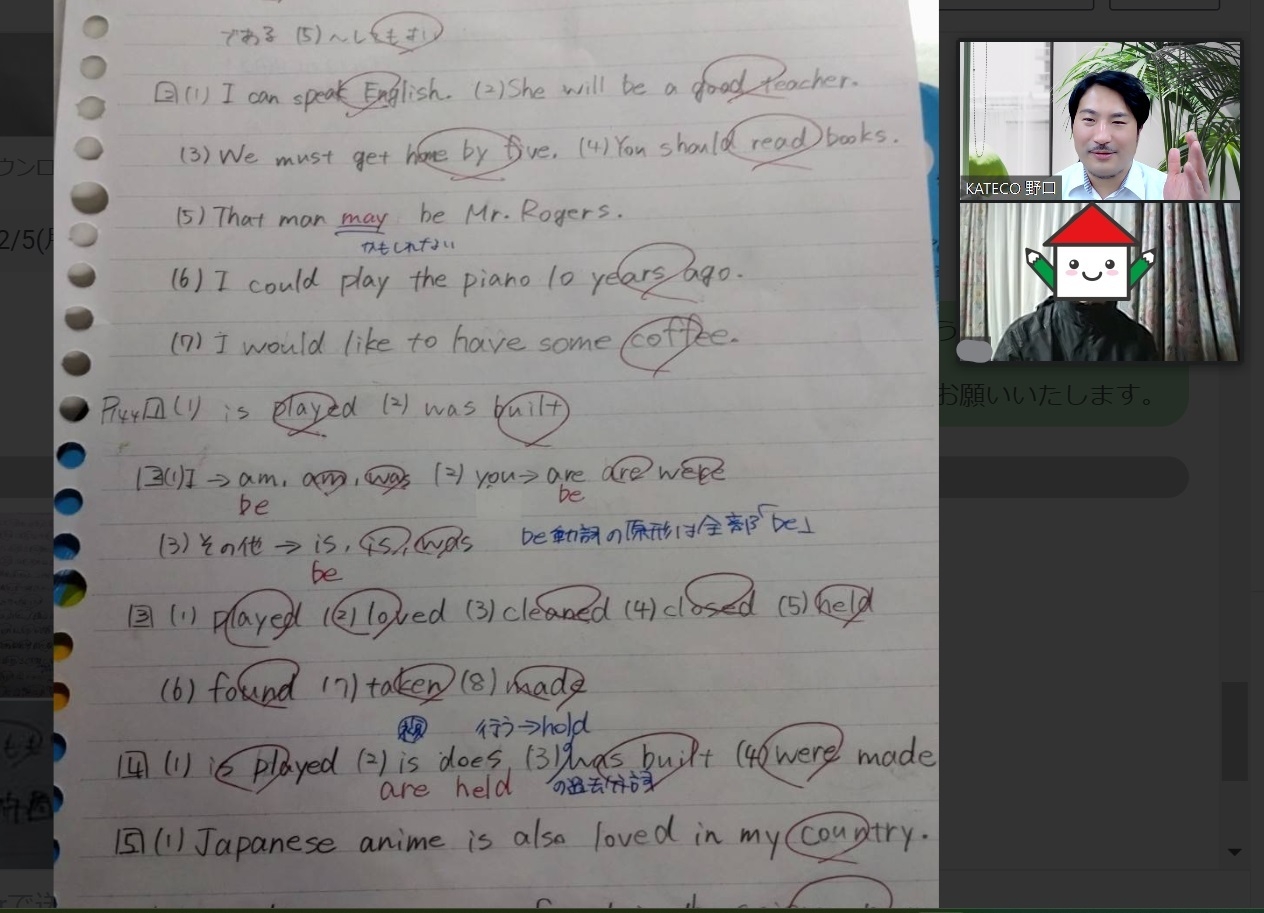 である (5)〜してもよい
2 (1) I can speak English. (2) She will be a good teacher.
(3) We must get home by five. (4) You should read books.
(5) That man may be Mr. Rogers.
かもしれない
(6) I could play the piano 10 years ago.
(7) I would like to have some coffee.
P144 1 (1) is played (2) was built
2 (1) I → am, am, was (2) you → are are were
be be
(3) その他 → is, is, was be動詞の原形は全部「be」
be
3 (1) played (2) loved (3) cleaned (4) closed (5) held
(6) found (7) taken (8) made
行う→hold
4 (1) is played (2) is does (3) was built (4) were made
are held の過去分詞
5 (1) Japanese anime is also loved in my country.
KATECO 野口
お願いいたします。
2/5(